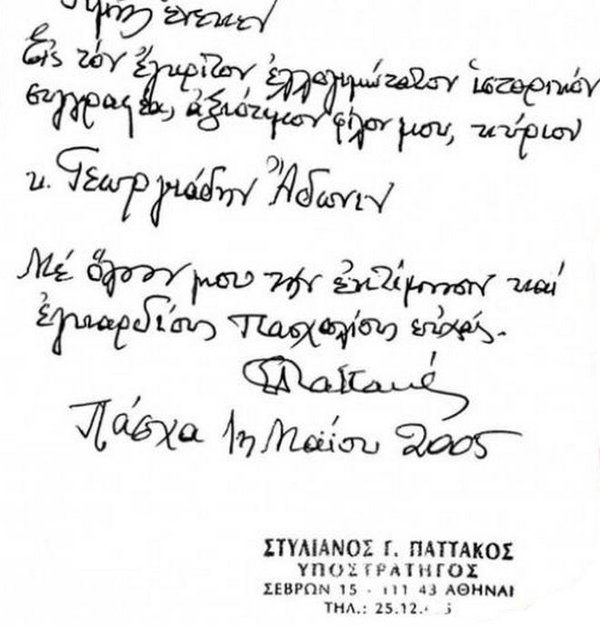 Τιμῆς ἕνεκεν
Εἰς τόν ἔγκριτον ἐλλογιμώτατον ἱστορικόν
συγγραφέα, ἀξιότιμον φίλον μου, κύριον
κ. Γεωργιάδην Ἄδωνιν
Μέ ὅλην μου τήν ἐκτίμησιν καί
ἐγκαρδίους Πασχαλίους εὐχάς.
ΣΠαττακός
Πάσχα 1η Μαΐου 2005
ΣΤΥΛΙΑΝΟΣ Γ. ΠΑΤΤΑΚΟΣ
ΥΠΟΣΤΡΑΤΗΓΟΣ
ΣΕΒΡΩΝ 15 - 111 43 ΑΘΗΝΑΙ
ΤΗΛ.: 25.12.